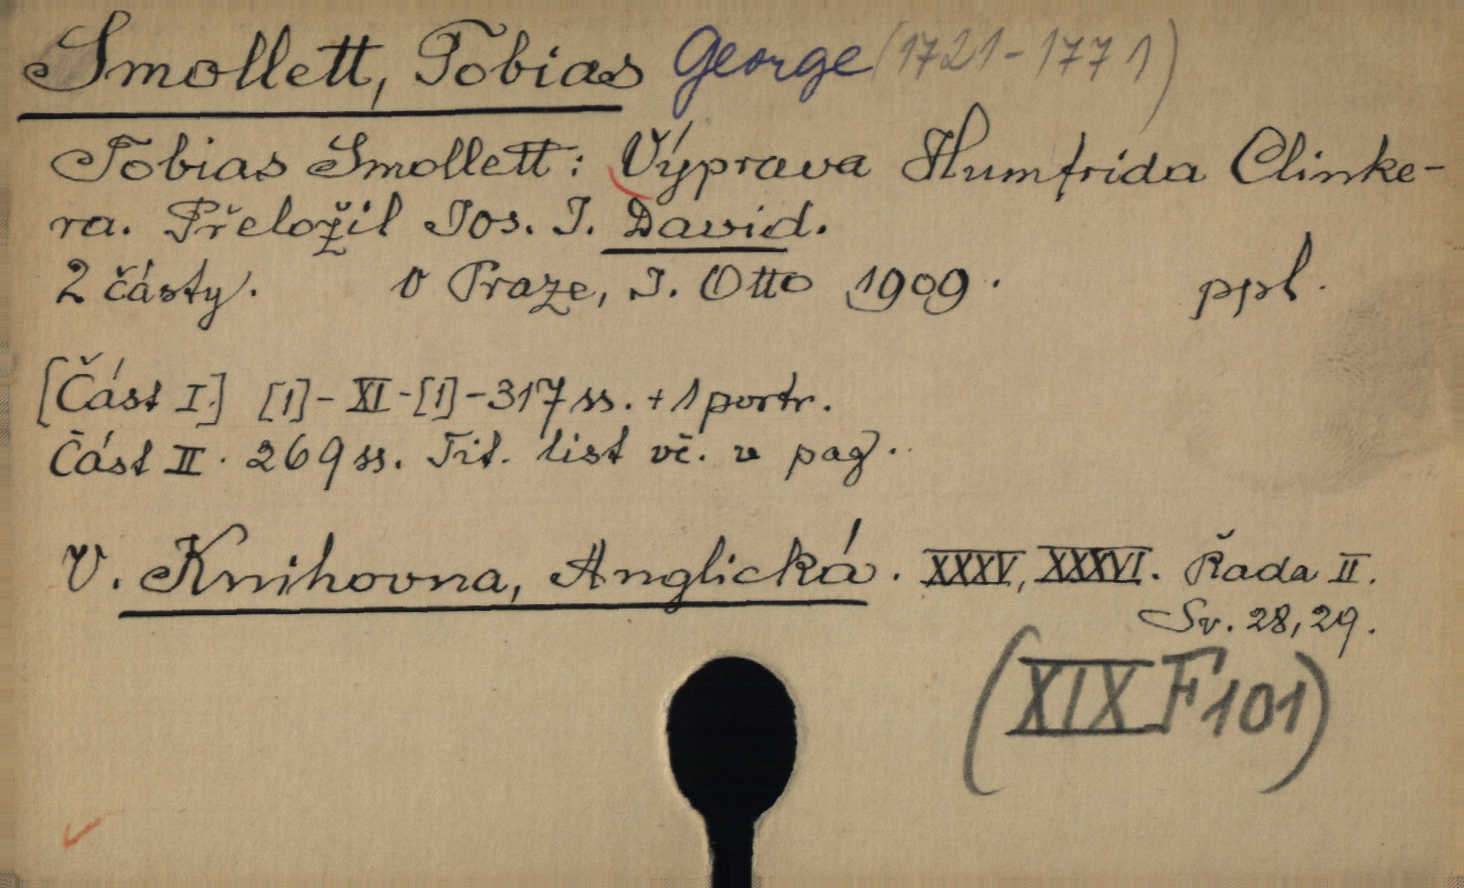 Smollett, Tobias George (1721-1771)
Tobias Smollett: Výprava Humfrida Clinke-
ra. Přeložil Jos. J. David.
2 částy. V Praze, J. Otto 1909. ppl.
[Část I.] [1]-XI-[1]-317 ss. + 1 portr.
Část II. 269 ss. Tit. list vč. v pag.
V. Knihovna, Anglická. XXXV, XXXVI. Řada II.
Sv. 28, 29.
(XIX F 101)